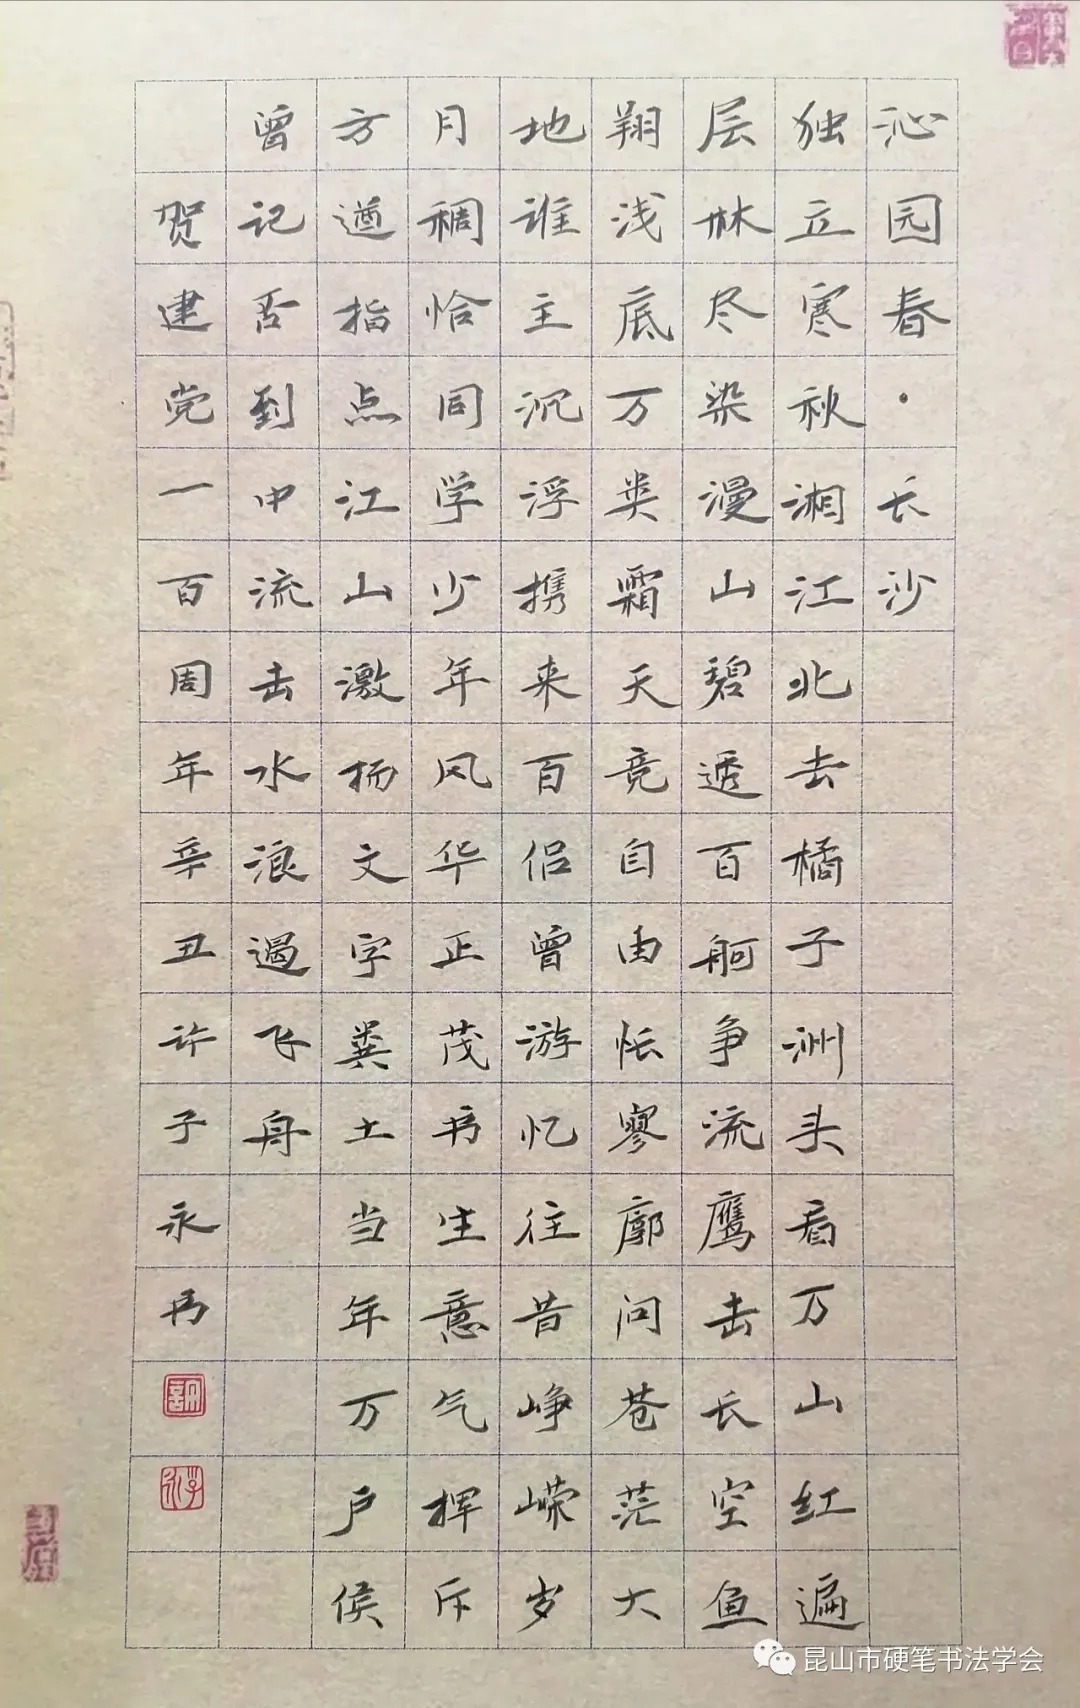 沁园春·长沙
独立寒秋湘江北去橘子洲头看万山红遍
层林尽染漫山碧透百舸争流鹰击长空鱼
翔浅底万类霜天竞自由怅寥廓问苍茫大
地谁主沉浮携来百侣曾游忆往昔峥嵘岁
月稠恰同学少年风华正茂书生意气挥斥
方遒指点江山激扬文字粪土当年万户侯
曾记否到中流击水浪遏飞舟
贺建党一百周年辛丑许子永书
昆山市硬笔书法学会